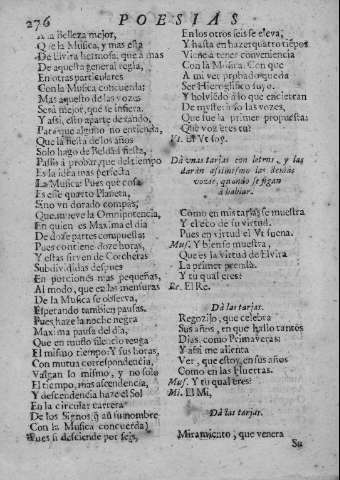 276 POESIAS
A la Belleza mejor,
Que la Musica, y mas esta
De Elvira hermosa, que à mas
De aquesta general regla,
En otras particulares
Con la Musica concuerda:
Mas aquesto de las vozes
Serà mejor, que se infiera.
Y assi, esto aparte dexando,
Para que alguno no entienda,
Que la fiesta de los años
Solo hago de Beldad fiesta,
Passo à probar, que del tiempo
Es la idea mas perfecta
La Musica: Pues que cosa
Es esse quarto Planeta,
Sino vn dorado compàs,
Que mueve la Omnipotencia,
En quien es Maxima el dia
De doze partes compuesta;
Pues contiene doze horas,
Y estas sirven de Corcheras
Subdivididas despues
En porciones mas pequeñas,
Al modo, que en las mensuras
De la Musica se observa,
Esperando tambien pausas.
Pues haze la noche negra
Maxima pausa del dia,
Que en mudo silencio tenga
El mismo tiempo: Y sus horas,
Con mutua correspondencia,
Valgan lo mismo, y no solo
El tiempo, mas ascendencia,
Y descendencia haze el Sol
En la circular carrera
De los Signos, q̃ aũ su nombre
Con la Musica concuerda:
Pues si desciende por seis,
En los otros seis se eleva;
Y hasta en hazer quatro tiẽpos
Viene à tener conveniencia
Con la Musica. Con que
A mi ver probado queda
Ser Hieroglifico suyo.
Y bolviedo à lo que encierran
De mysterioso las vezes,
Que fue la primer propuesta:
Què voz eres tu?
Vt. El Vt soy.
Dà vnas tarjas con letras, y las
daràn assimismo las demàs
vozes, quando se sigan
à hablar.
Como en mis tarjas se muestra
Y electo de su virtud.
Pues en virtud el Vt suena.
Mus. Y bien se muestra,
Que es la Virtud de Elvira
La primer premisa.
Y tu qual eres?
Re. El Re.
Dà la tarjas.
Regozijo, que celebra
Sus años, en que hallo tantos
Dias, como Primaveras;
Y assi me alienta
Ver, que estoy, en sus años
Como en las Huertas.
Mus. Y tu qual eres?
Mi. El Mi,
Dà las tarjas.
Miramiento, que venera
Su